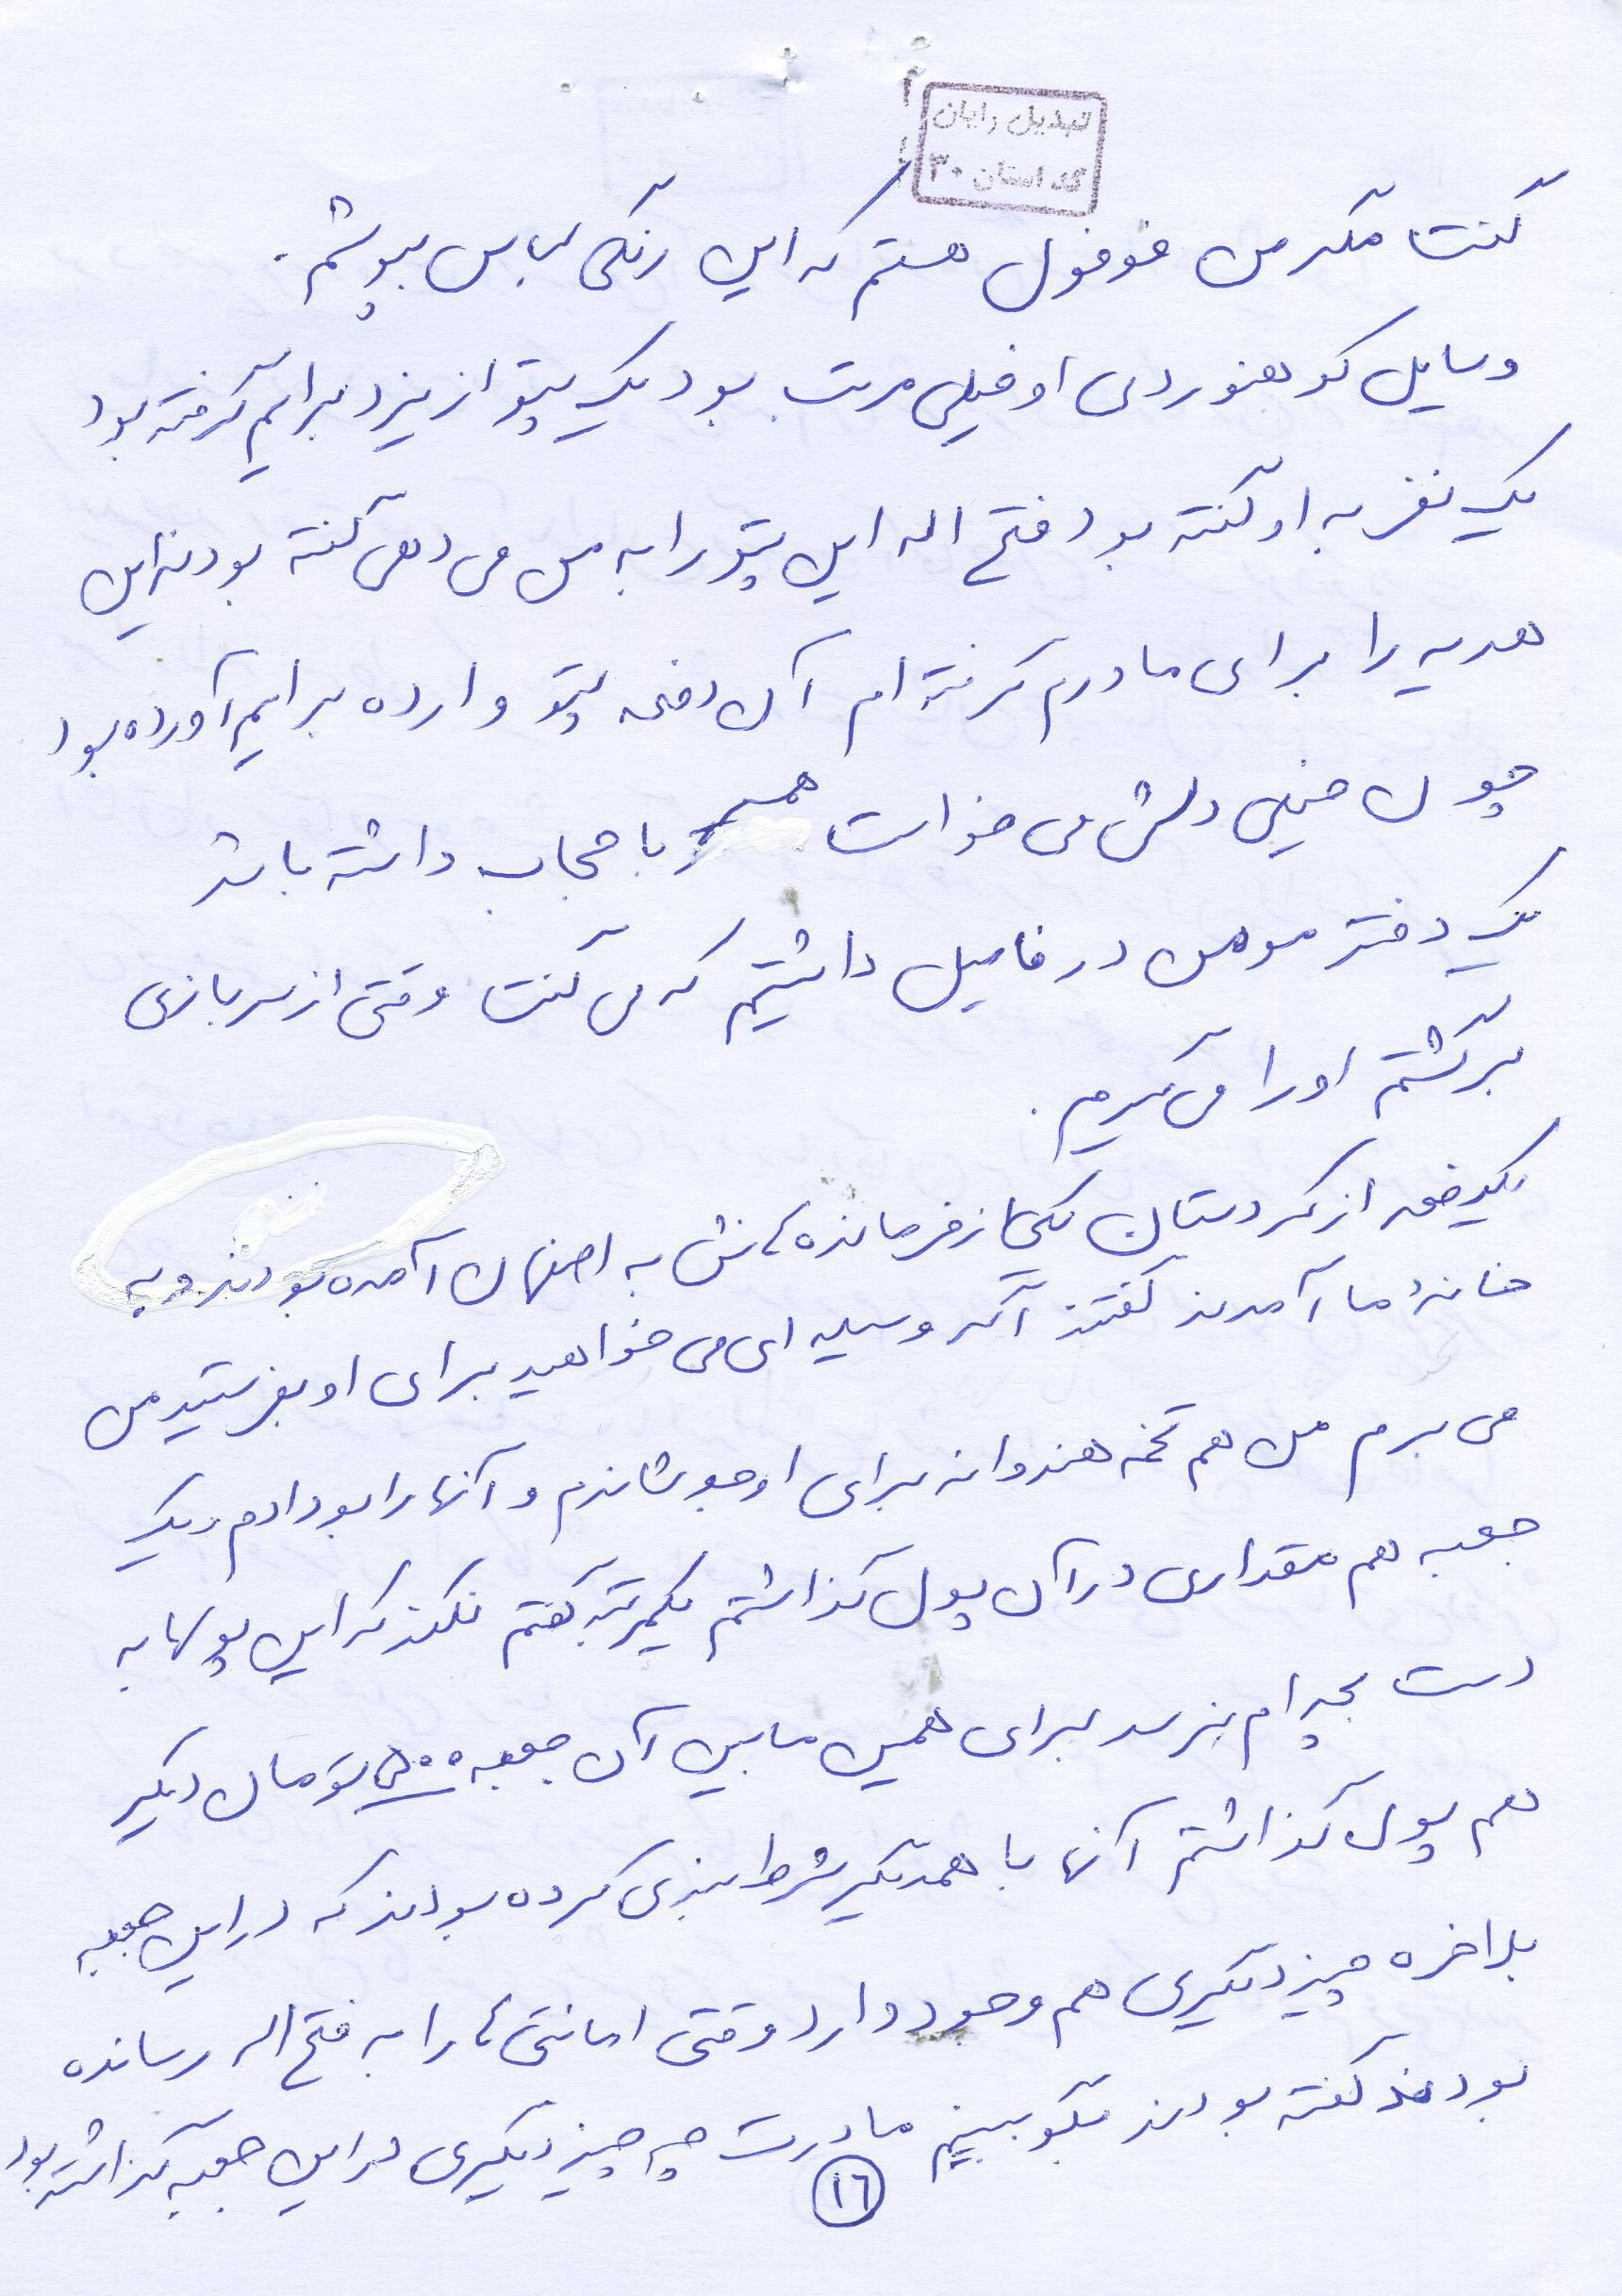 تبدیل رایان
کد استان ۳۰
گفت مگر من فوفول هستم که این رنگی لباس بپوشم.
وسایل کوهنوردی او خیلی مرتب بود یک پتو از یزد برایم گرفته بود
یک نفر به او گفته بود فتح اله این پتو را به من می دهی گفته بود نه این
هدیه را برای مادرم گرفته ام آن دفعه پتو و ارده برایم آورده بود
چون خیلی دلش می خواست همسر با حجاب داشته باشد
یک دختر مومن در فامیل داشتیم که می گفت وقتی از سربازی
برگشتم او را می گیرم.
یکدفعه از کردستان یکی از فرمانده هاش به اصفهان آمده بودند و به
خانه ما آمدند گفتند اگر وسیله ای می خواهید برای او بفرستید من
می برم من هم تخمه هندوانه برای او جوشاندم و آنها را بو دادم و یک
جعبه هم مقداری در آن پول گذاشتم یکمرتبه گفتم نکند که این پولها به
دست بچه ام نرسد برای همین مابین آن جعبه ۵۰۰ تومان دیگر
هم پول گذاشتم آنها با همدیگر شرط بندی کرده بودند که در این جعبه
بلاخره چیز دیگری هم وجود دارد وقتی امانتی ها را به فتح اله رسانده
بودند گفته بودند بگو ببینم مادرت چه چیز دیگری در این جعبه گذاشته بود
۱۶